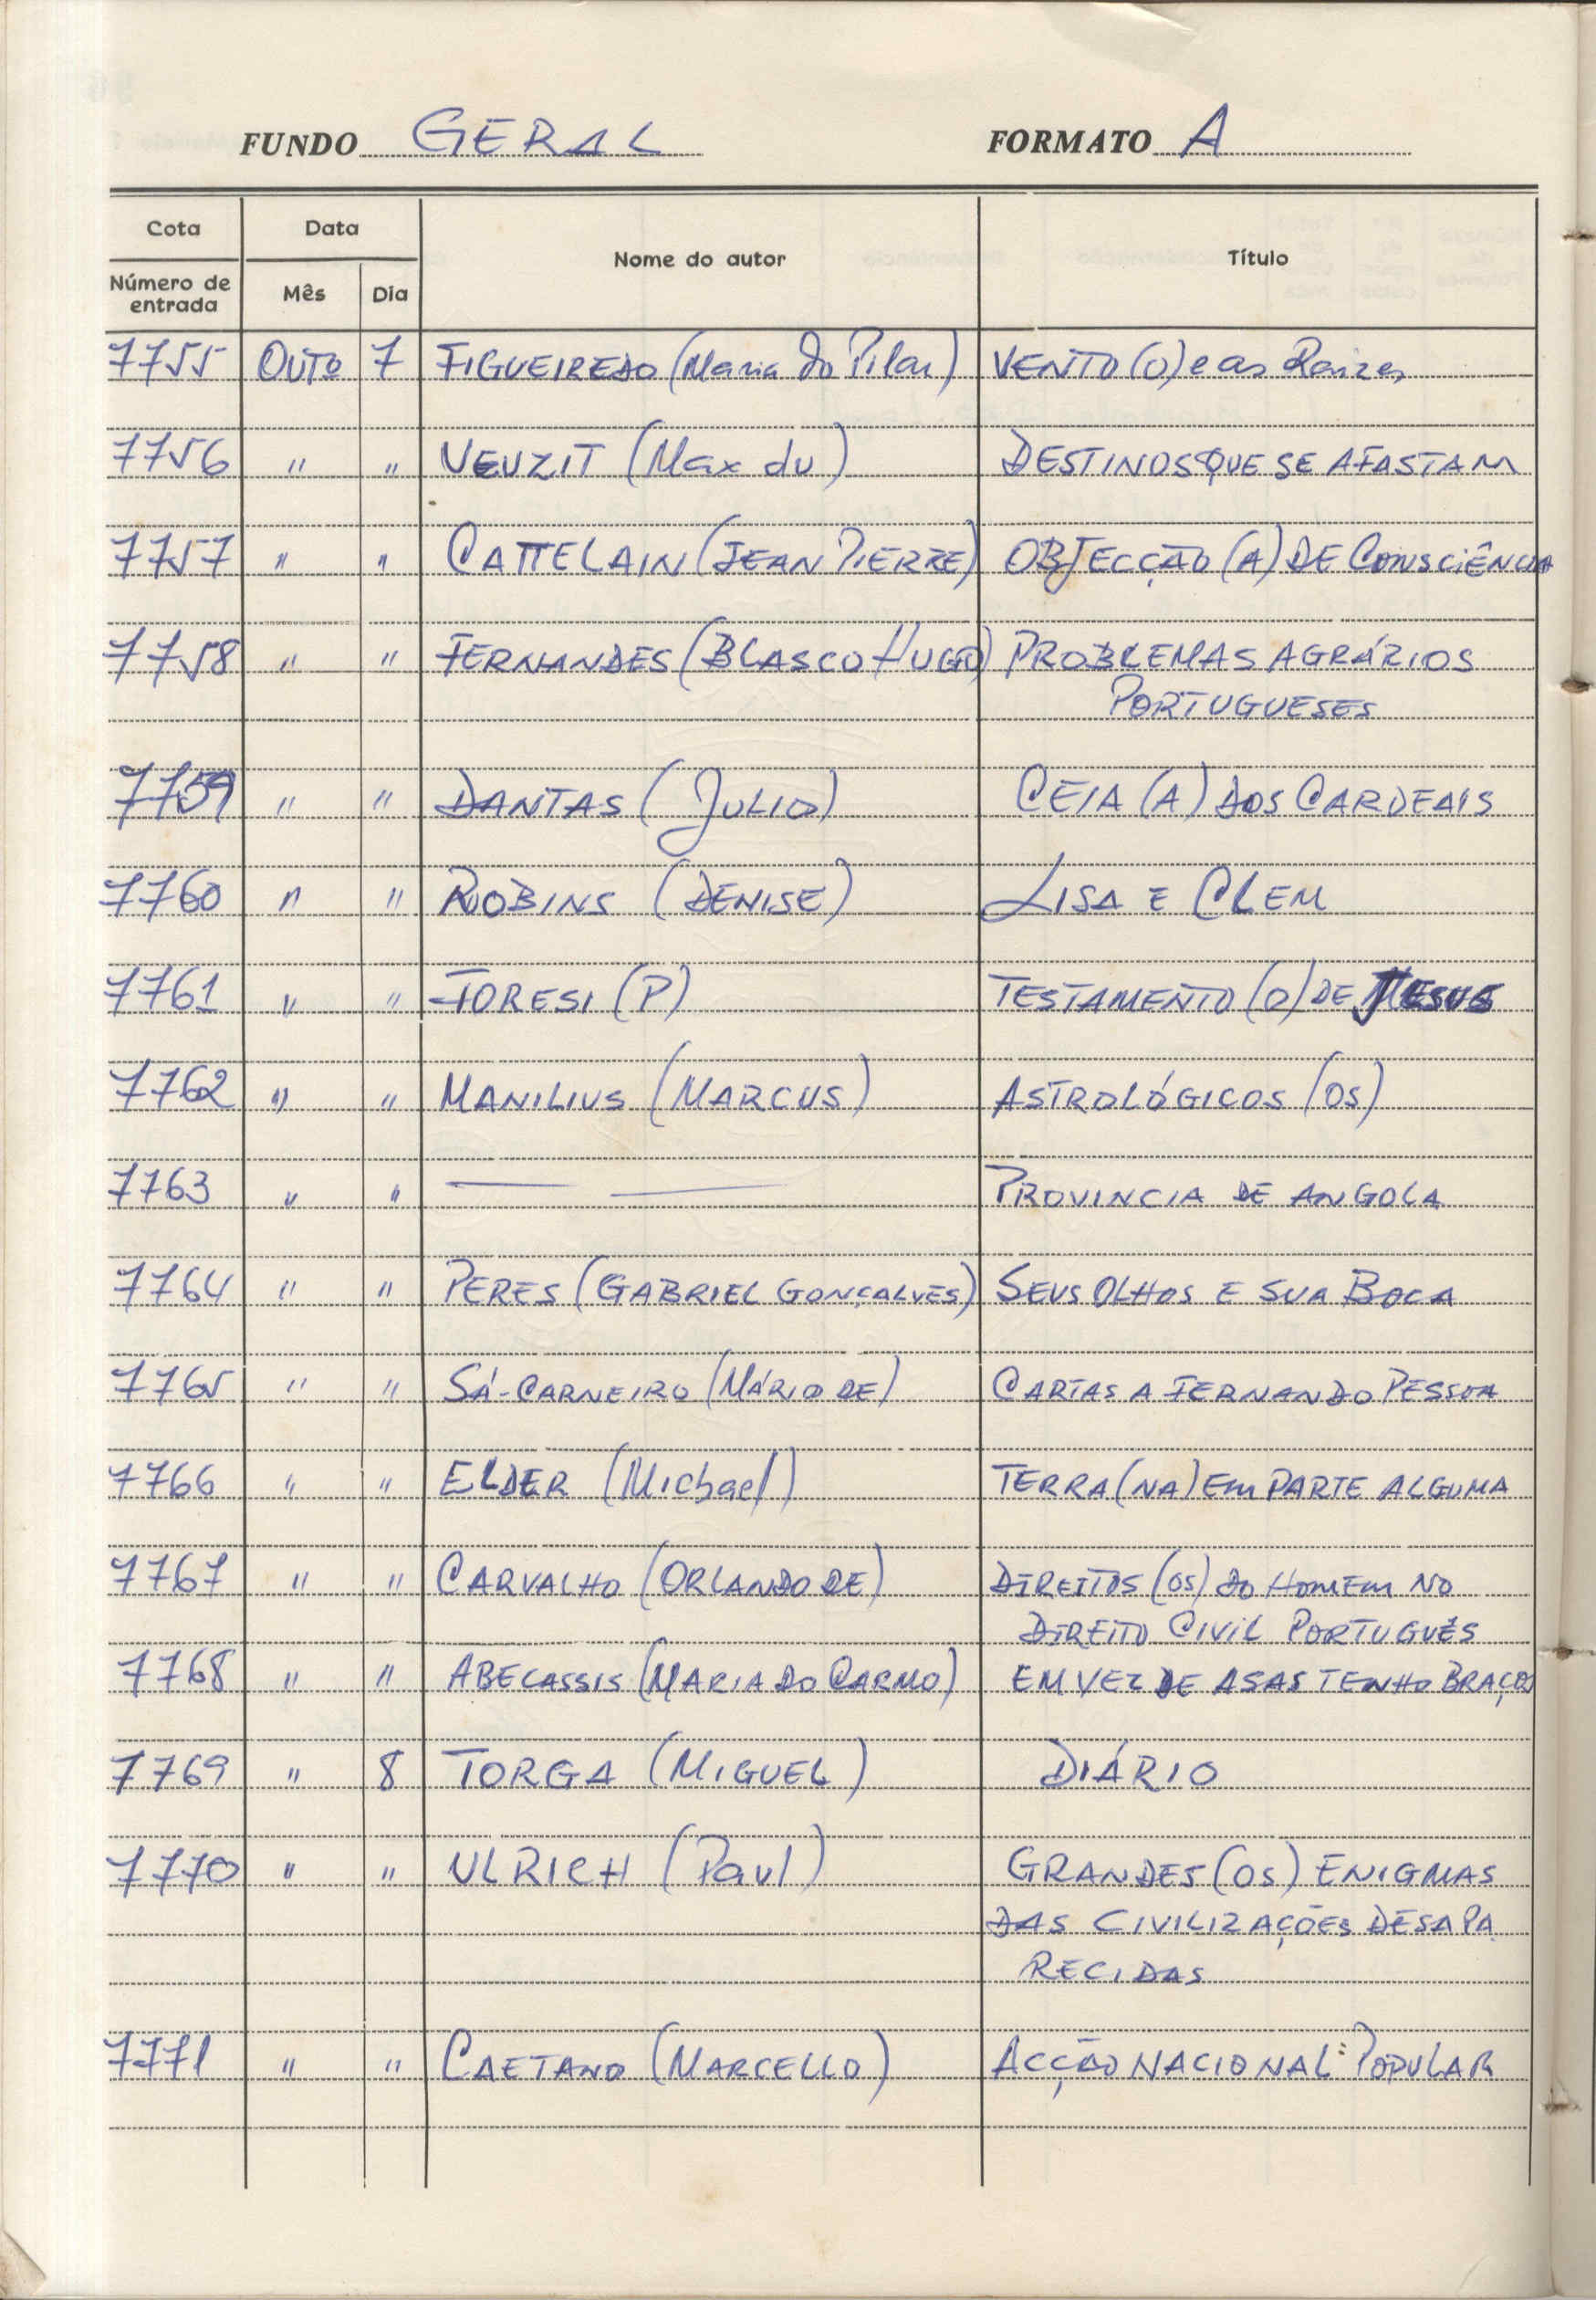 FUNDO GERAL FORMATO A
Cota Data Nome do autor Título
Número de entrada Mês Dia
7755 OUTO 7 FIGUEIREDO (Maria do Pilar) VENTO (O) e as Raizes
7756 " " VEUZIT (Max du) DESTINOS QUE SE AFASTAM
7757 " " CATTELAIN (JEAN PIERRE) OBJECÇÃO (A) DE CONSCIÊNCIA
7758 " " FERNANDES (BLASCO HUGO) PROBLEMAS AGRÁRIOS
PORTUGUESES
7759 " " DANTAS (JULIO) CEIA (A) DOS CARDEAIS
7760 " " ROBINS (DENISE) LISA E CLEM
7761 " " FORESI (P) TESTAMENTO (O) DE JESUS
7762 " " MANILIUS (MARCUS) ASTROLÓGICOS (OS)
7763 " " — — PROVINCIA DE ANGOLA
7764 " " PERES (GABRIEL GONÇALVES) SEUS OLHOS E SUA BOCA
7765 " " SÁ-CARNEIRO (MÁRIO DE) CARTAS A FERNANDO PESSOA
7766 " " ELDER (Michael) TERRA (NA) EM PARTE ALGUMA
7767 " " CARVALHO (ORLANDO DE) DIREITOS (OS) DO HOMEM NO
DIREITO CIVIL PORTUGUÊS
7768 " " ABECASSIS (MARIA DO CARMO) EM VEZ DE ASAS TENHO BRAÇOS
7769 " 8 TORGA (MIGUEL) DIÁRIO
7770 " " ULRICH (Paul) GRANDES (OS) ENIGMAS
DAS CIVILIZAÇÕES DESAPA
RECIDAS
7771 " " CAETANO (MARCELLO) ACÇÃO NACIONAL: POPULAR